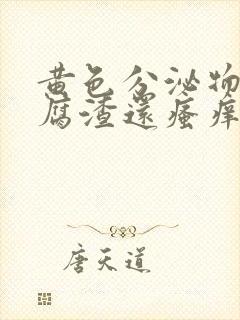 黄色分泌物
腐渣還瘙痒
唐天道